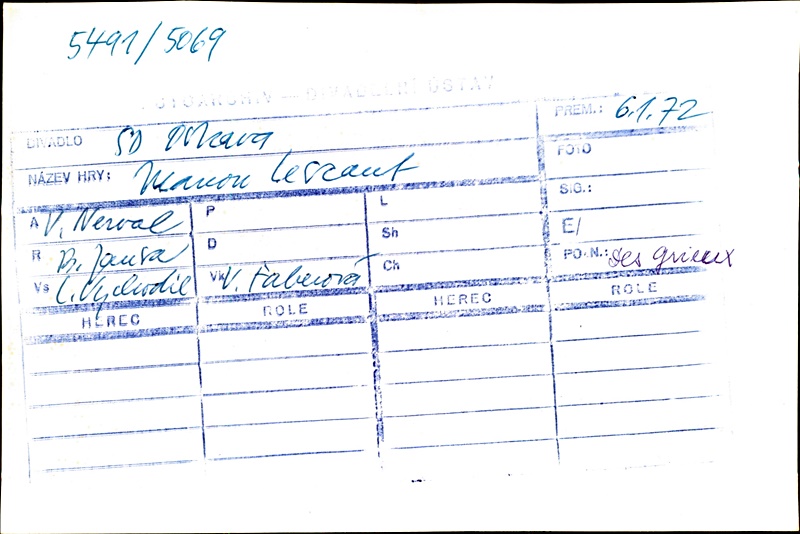 5491/5069
FOTOARCHIV — DIVADELNÍ ÚSTAV
DIVADLO SD Ostrava
PREM.: 6.1.72
NÁZEV HRY: Manon Lescaut
FOTO
SIG.:
A V. Nerval
P
L
E/
R B. Jansa
D
Sh
PO.N.: des grieux
Vs L. Vychodil
Vk V. Faberová
Ch
HEREC ROLE HEREC ROLE